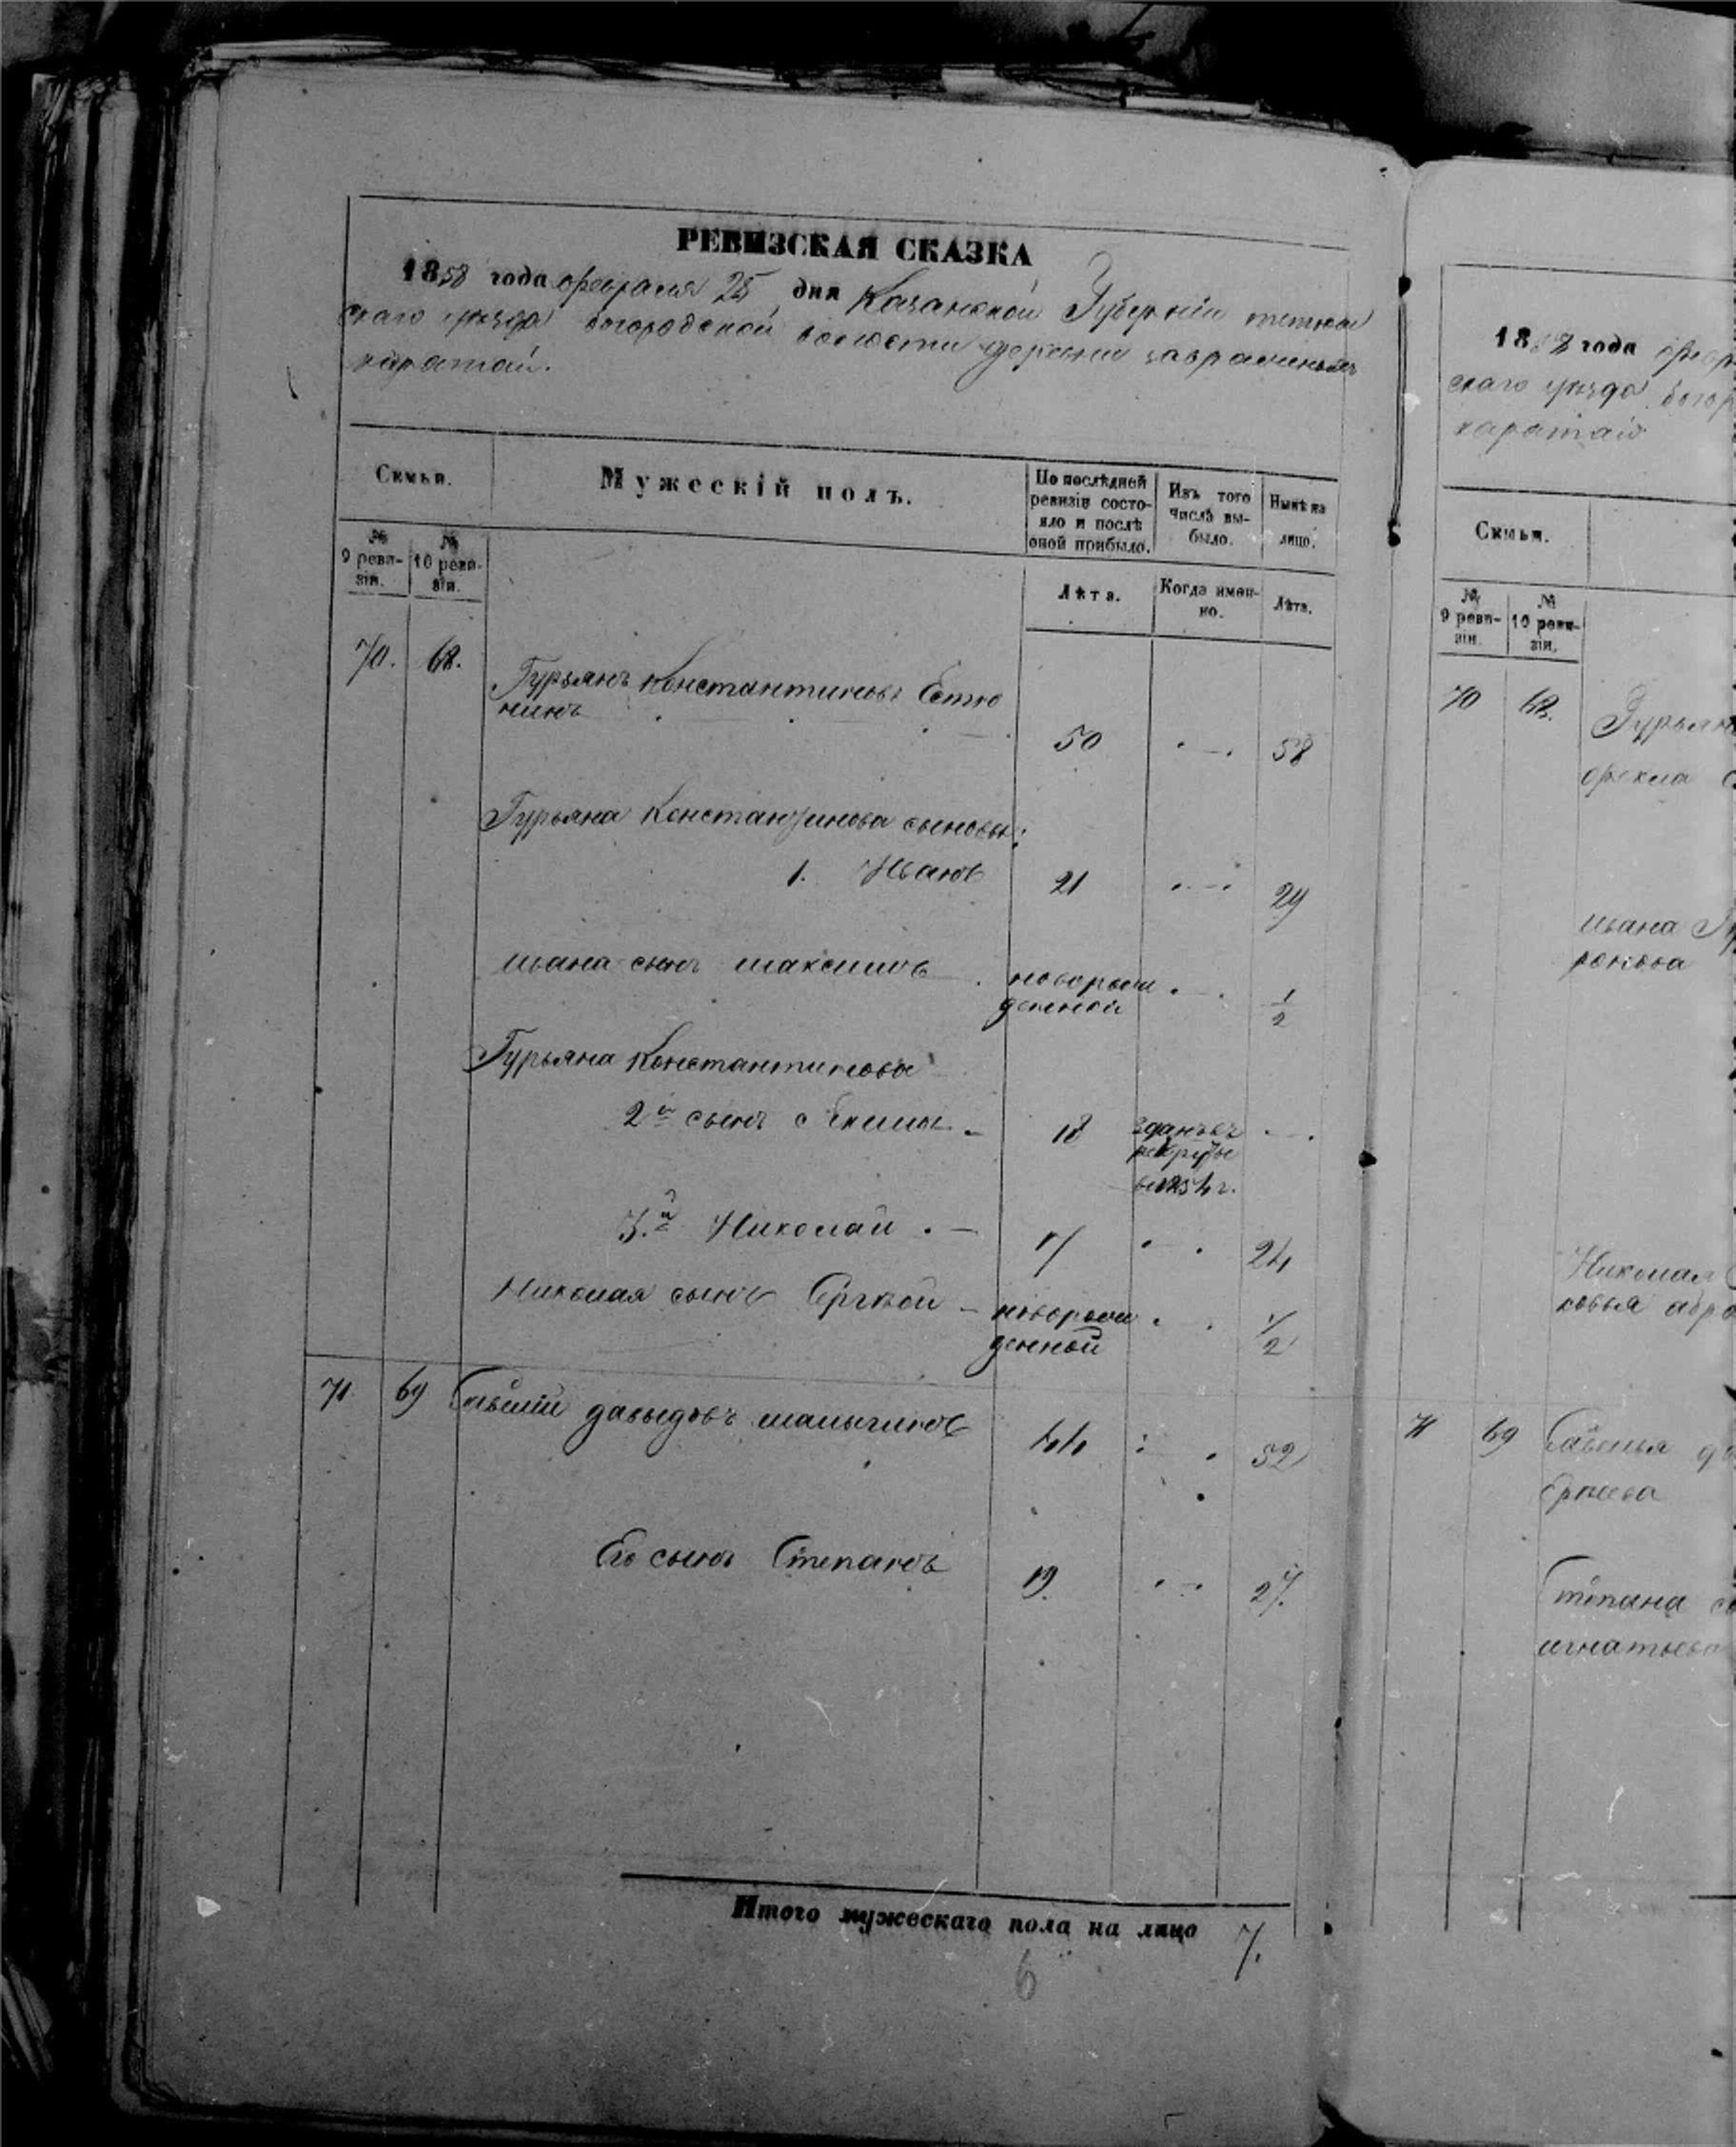 РЕВИЗСКАЯ СКАЗКА
1858 года февраля 25 дня Казанской Губерніи тетюш
скаго уѣзда богородской волости деревни
каратай.
Семьи.
Мужескій полъ.
По послѣдней ревизіи состо-яло и послѣ оной прибыло.
Изъ того числа вы-было.
Нынѣ на лицо.
№ 9 реви-зіи.
№ 10 реви-зіи.
Лѣта.
Когда имен-но.
Лѣта.
70. 68. Гурьянъ Константиновъ Естю
нинъ
50 58
Гурьяна Константинова сыновья:
1. Иванъ 21 29
ивана сынъ максимъ новорож
денной 1/2
Гурьяна Константинова
2й сынъ 18 зданъ въ
рекруты
въ 1854 г.
3.й Николай 17 24
Николая сынъ Сергѣй новорож
денной 1/2
71. 69 Савелій давыдовъ мамычивъ 44 52
Его сынъ Степанъ 19. 27.
Итого мужескаго пола на лицо 7.
6
1858 года февр
скаго уѣзда богор
каратай
Семьи.
№ 9 реви-зіи.
№ 10 реви-зіи.
70 68. Гурьян
фекла
ивана
Николая
71 69 Савелья
Степана
игнатьева